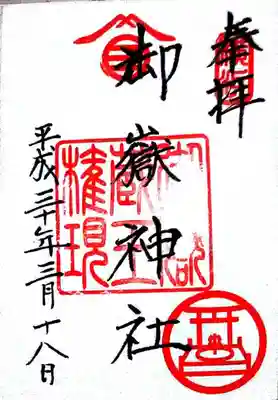 奉拝
御嶽神社
平成三十年三月十八日
御嶽
蔵王
権現